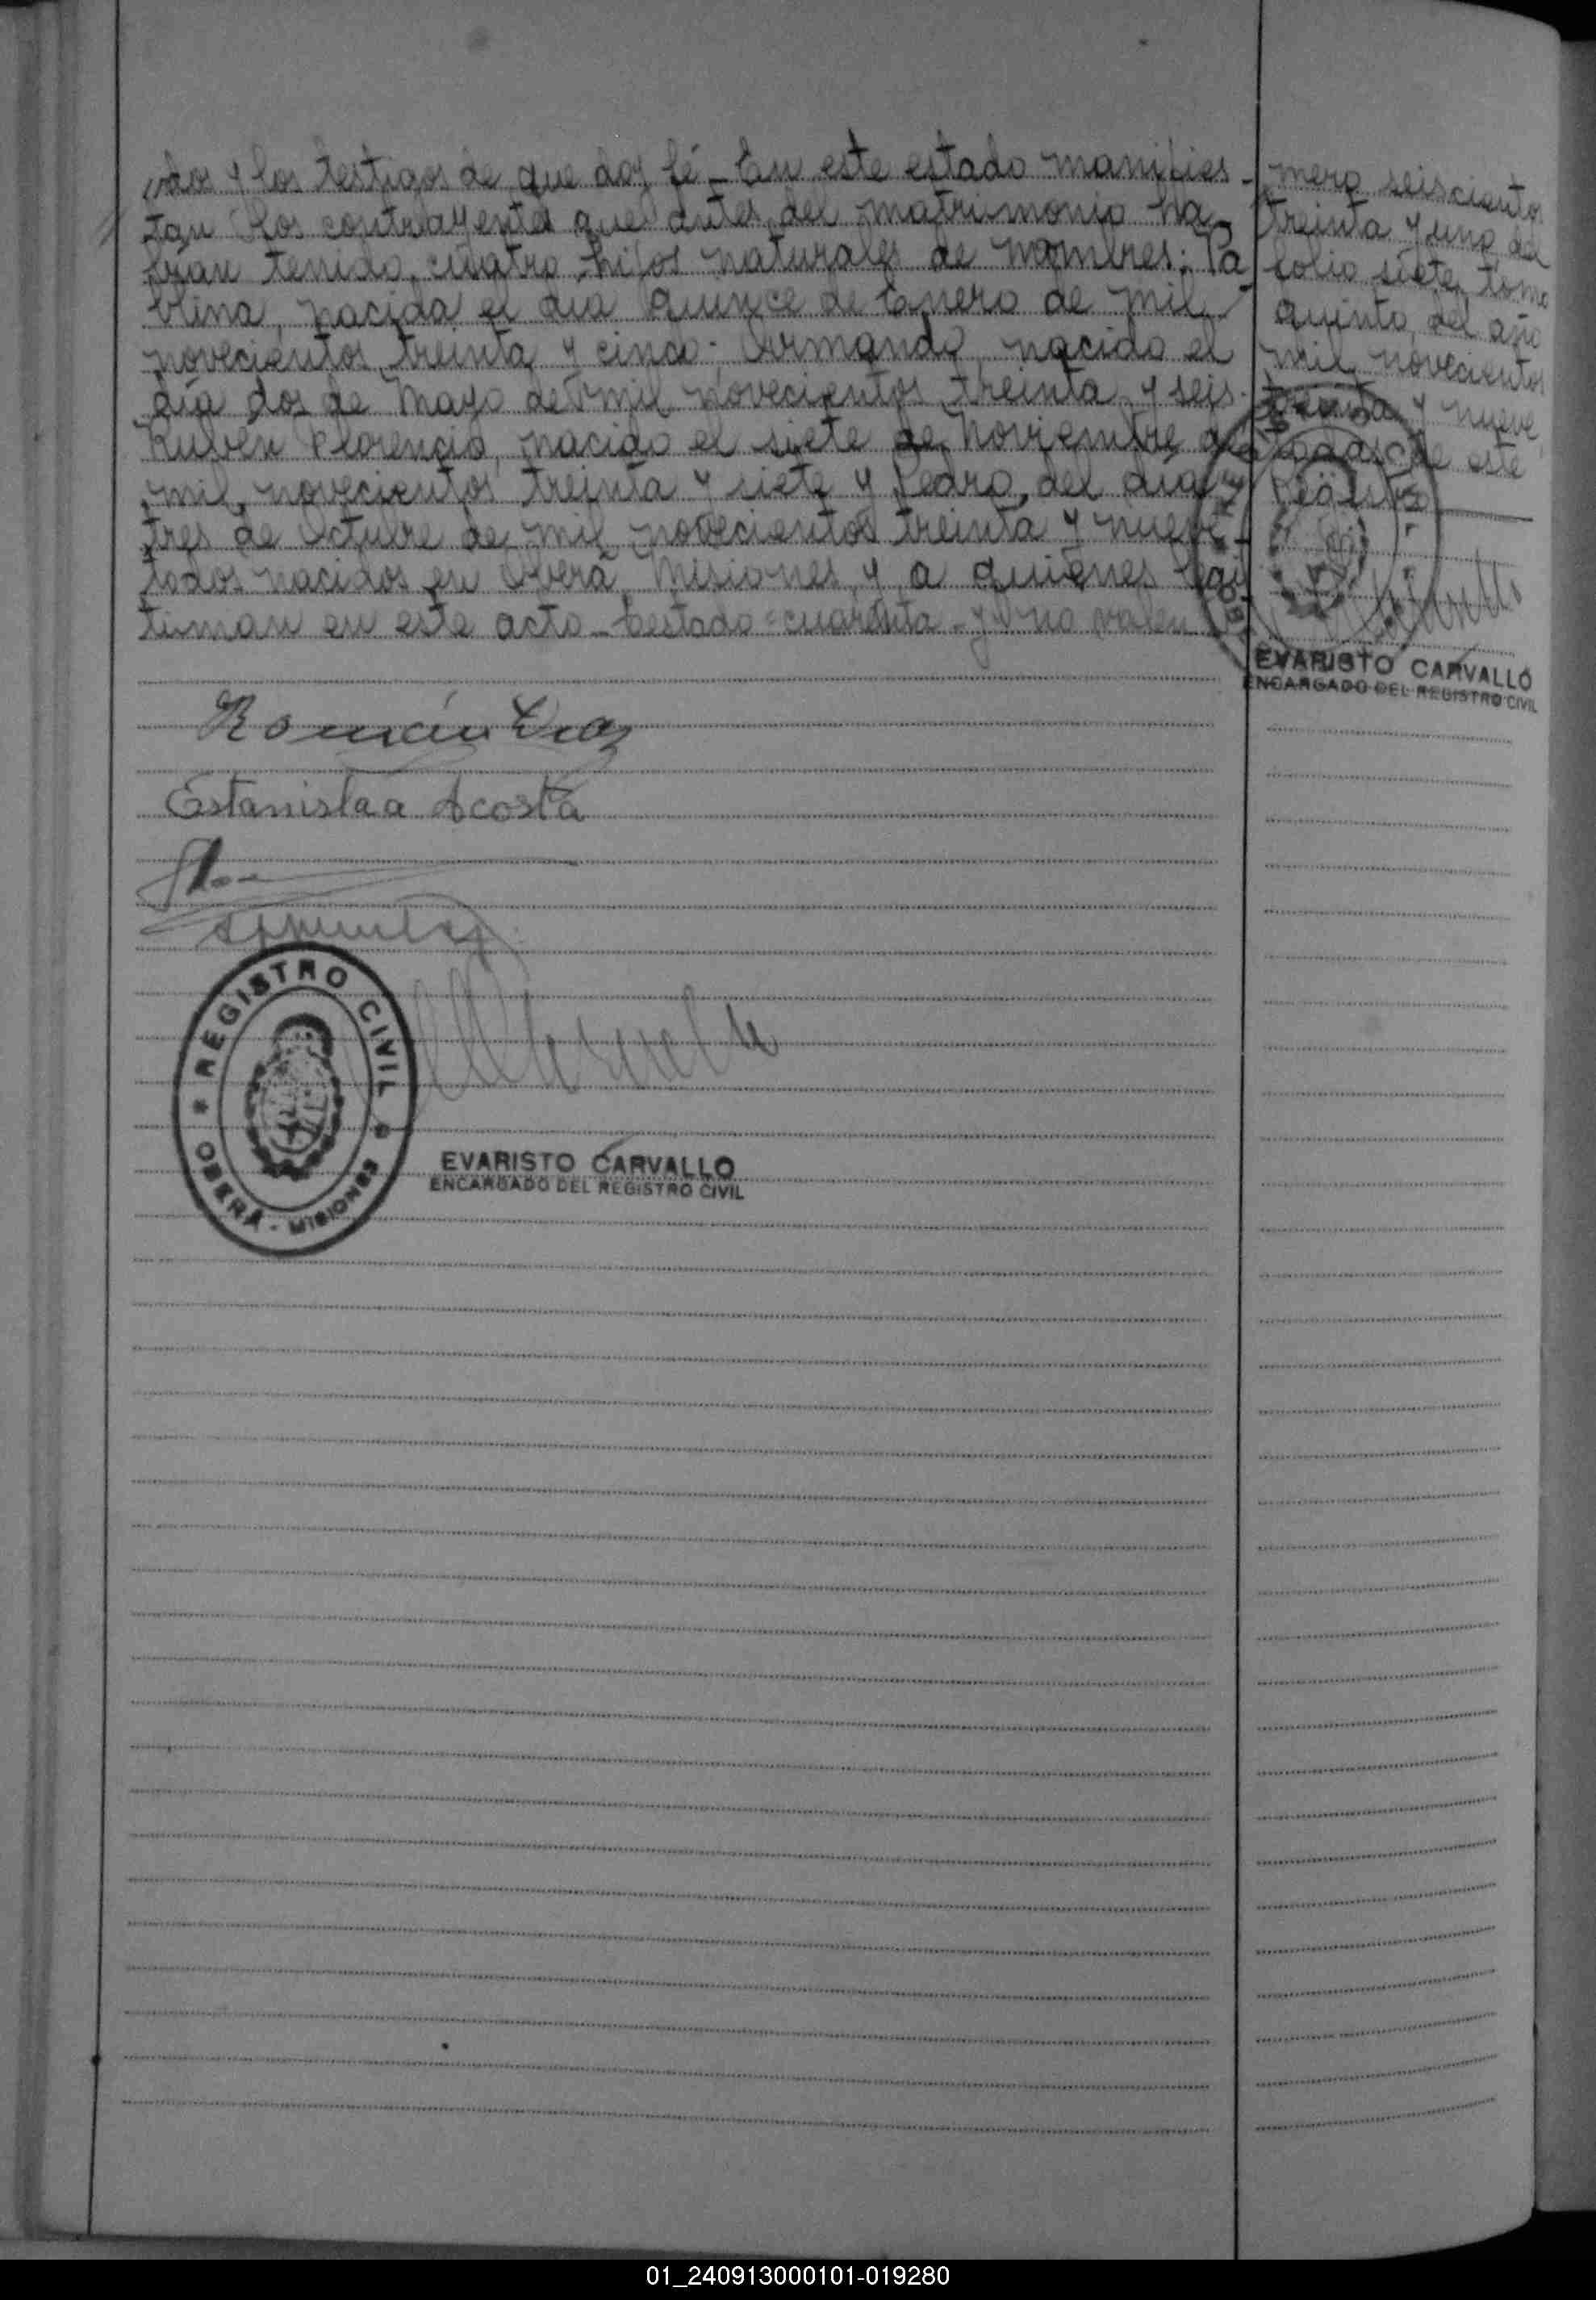 dos y los testigos de que doy fé_ En este estado manifies-
tan los contrayentes que antes del matrimonio ha-
brían tenido, cuatro hijos naturales de nombres: Pa
blina, nacida el dia quince de Enero de mil
novecientos treinta y cinco; Armando, nacido el
día dos de Mayo de mil novecientos treinta y seis.
Rubén Florencio, nacido el siete de Noviembre de
mil, novecientos treinta y siete y Pedro, del día
tres de Octubre de mil novecientos treinta y nueve-
todos nacidos en Oberá, Misiones, y a quiénes legi
timan en este acto_ testado=cuarenta_y no valen
mero seiscientos
treinta y uno del
folio siete, tomo
quinto, del año
mil novecientos
treinta y nueve,
todas de este
Registro
EVARISTO CARVALLO
ENCARGADO DEL REGISTRO CIVIL
Román
Estanislaa Acosta
REGISTRO CIVIL
OBERÁ - MISIONES
EVARISTO CARVALLO
ENCARGADO DEL REGISTRO CIVIL
01_240913000101-019280